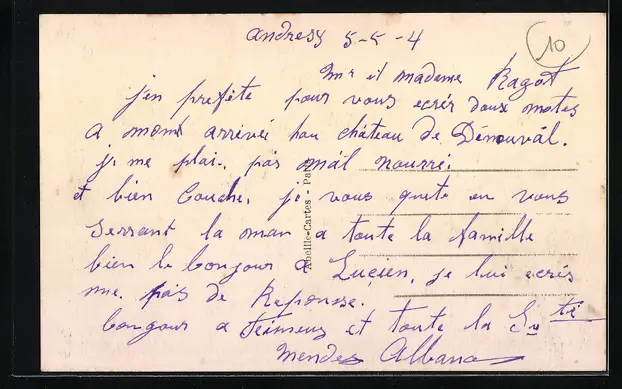 andresy 5-5-4
10
Mr et madame Ragot
j'en profite pour vous ecrér doux motes
a mont arrivée hau château de Dénouvál.
je me plai. pas mál nourré.
et bien Couche. je vous quete en vous
serrant la man a toute la famille
bien le bonjour a Luçien, je lui ecris
me. pás de Reponse.
bongour a et toute la Su te
Mendes Albana
Abeille-Cartes - Pa